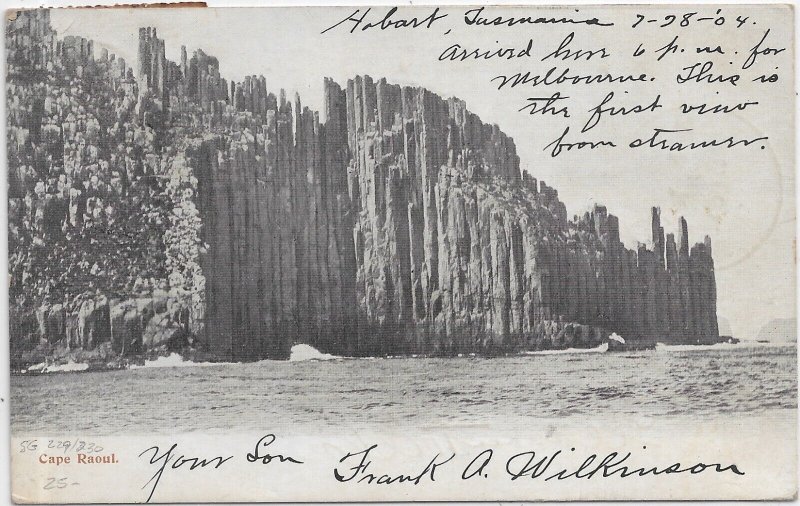 Hobart, Tasmania 7-28-'04.
Arrived here 6 p.m. for
Melbourne. This is
the first view
from steamer.
SG 229/230
Cape Raoul.
25-
Your Son Frank A. Wilkinson